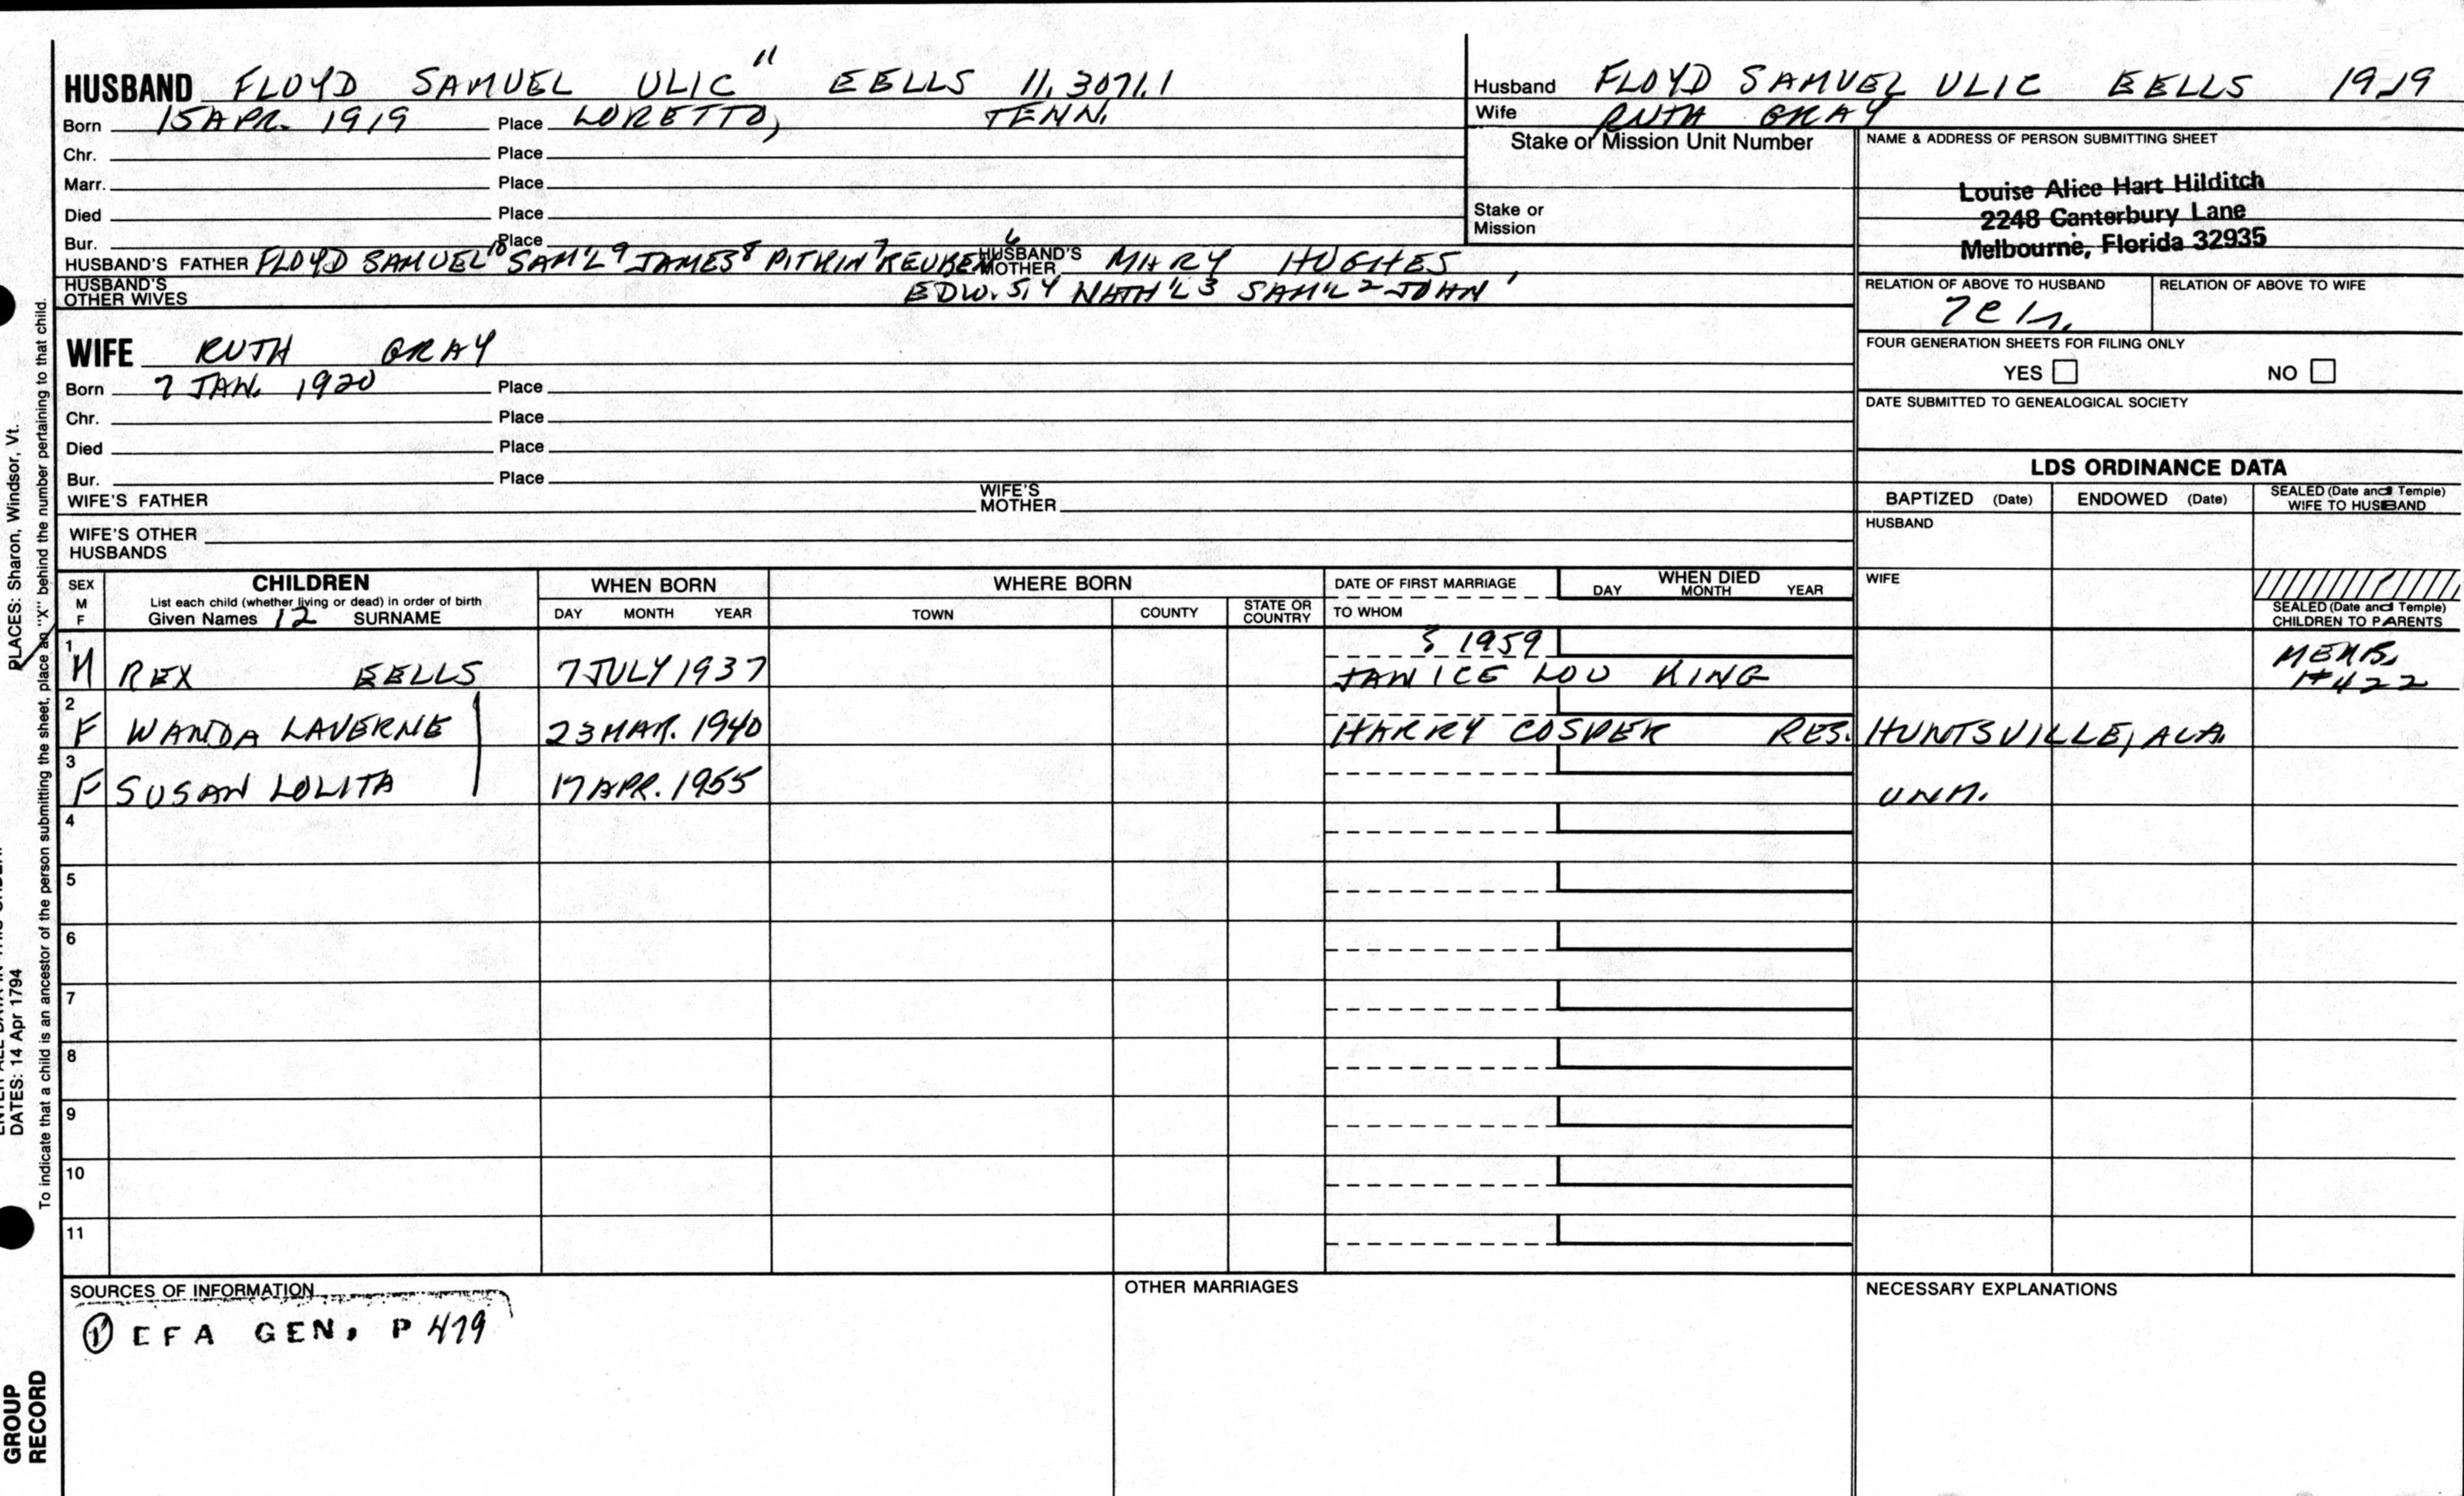 HUSBAND FLOYD SAMUEL ULIC 11 EELLS 11.3071.1
Born 15 APR. 1919 Place LORETTO, TENN.
Chr. Place
Marr. Place
Died Place
Bur. Place
HUSBAND'S FATHER FLOYD SAMUEL 10 SAM'L 9 JAMES 8 PITKIN 7 REUBEN 6 HUSBAND'S MOTHER MARY HUGHES,
HUSBAND'S OTHER WIVES EDW. 5,4 NATH'L 3 SAM'L 2 JOHN 1
Husband FLOYD SAMUEL ULIC EELLS 1919
Wife RUTH GRAY
Stake or Mission Unit Number
Stake or
Mission
NAME & ADDRESS OF PERSON SUBMITTING SHEET
Louise Alice Hart Hilditch
2248 Canterbury Lane
Melbourne, Florida 32935
RELATION OF ABOVE TO HUSBAND RELATION OF ABOVE TO WIFE
FOUR GENERATION SHEETS FOR FILING ONLY
YES NO
DATE SUBMITTED TO GENEALOGICAL SOCIETY
WIFE RUTH GRAY
Born 7 JAN. 1920 Place
Chr. Place
Died Place
Bur. Place
WIFE'S FATHER WIFE'S MOTHER
WIFE'S OTHER
HUSBANDS
LDS ORDINANCE DATA
BAPTIZED (Date) ENDOWED (Date) SEALED (Date and Temple) WIFE TO HUSBAND
HUSBAND
WIFE
SEALED (Date and Temple) CHILDREN TO PARENTS
SEX M F CHILDREN WHEN BORN WHERE BORN DATE OF FIRST MARRIAGE WHEN DIED
List each child (whether living or dead) in order of birth
Given Names 12 SURNAME DAY MONTH YEAR TOWN COUNTY STATE OR COUNTRY TO WHOM DAY MONTH YEAR
1 M REX EELLS 7 JULY 1937 1959 JANICE LOU KING MEMB. #422
2 F WANDA LAVERNE 23 MAR. 1940 HARRY COSPER RES. HUNTSVILLE, ALA.
3 F SUSAN LOLITA 17 APR. 1955 UNM.
4
5
6
7
8
9
10
11
SOURCES OF INFORMATION
① EFA GEN. P 479
OTHER MARRIAGES
NECESSARY EXPLANATIONS
PLACES: Sharon, Windsor, Vt.
DATES: 14 Apr 1794
To indicate that a child is an ancestor of the person submitting the sheet, place an "X" behind the number pertaining to that child.
GROUP
RECORD